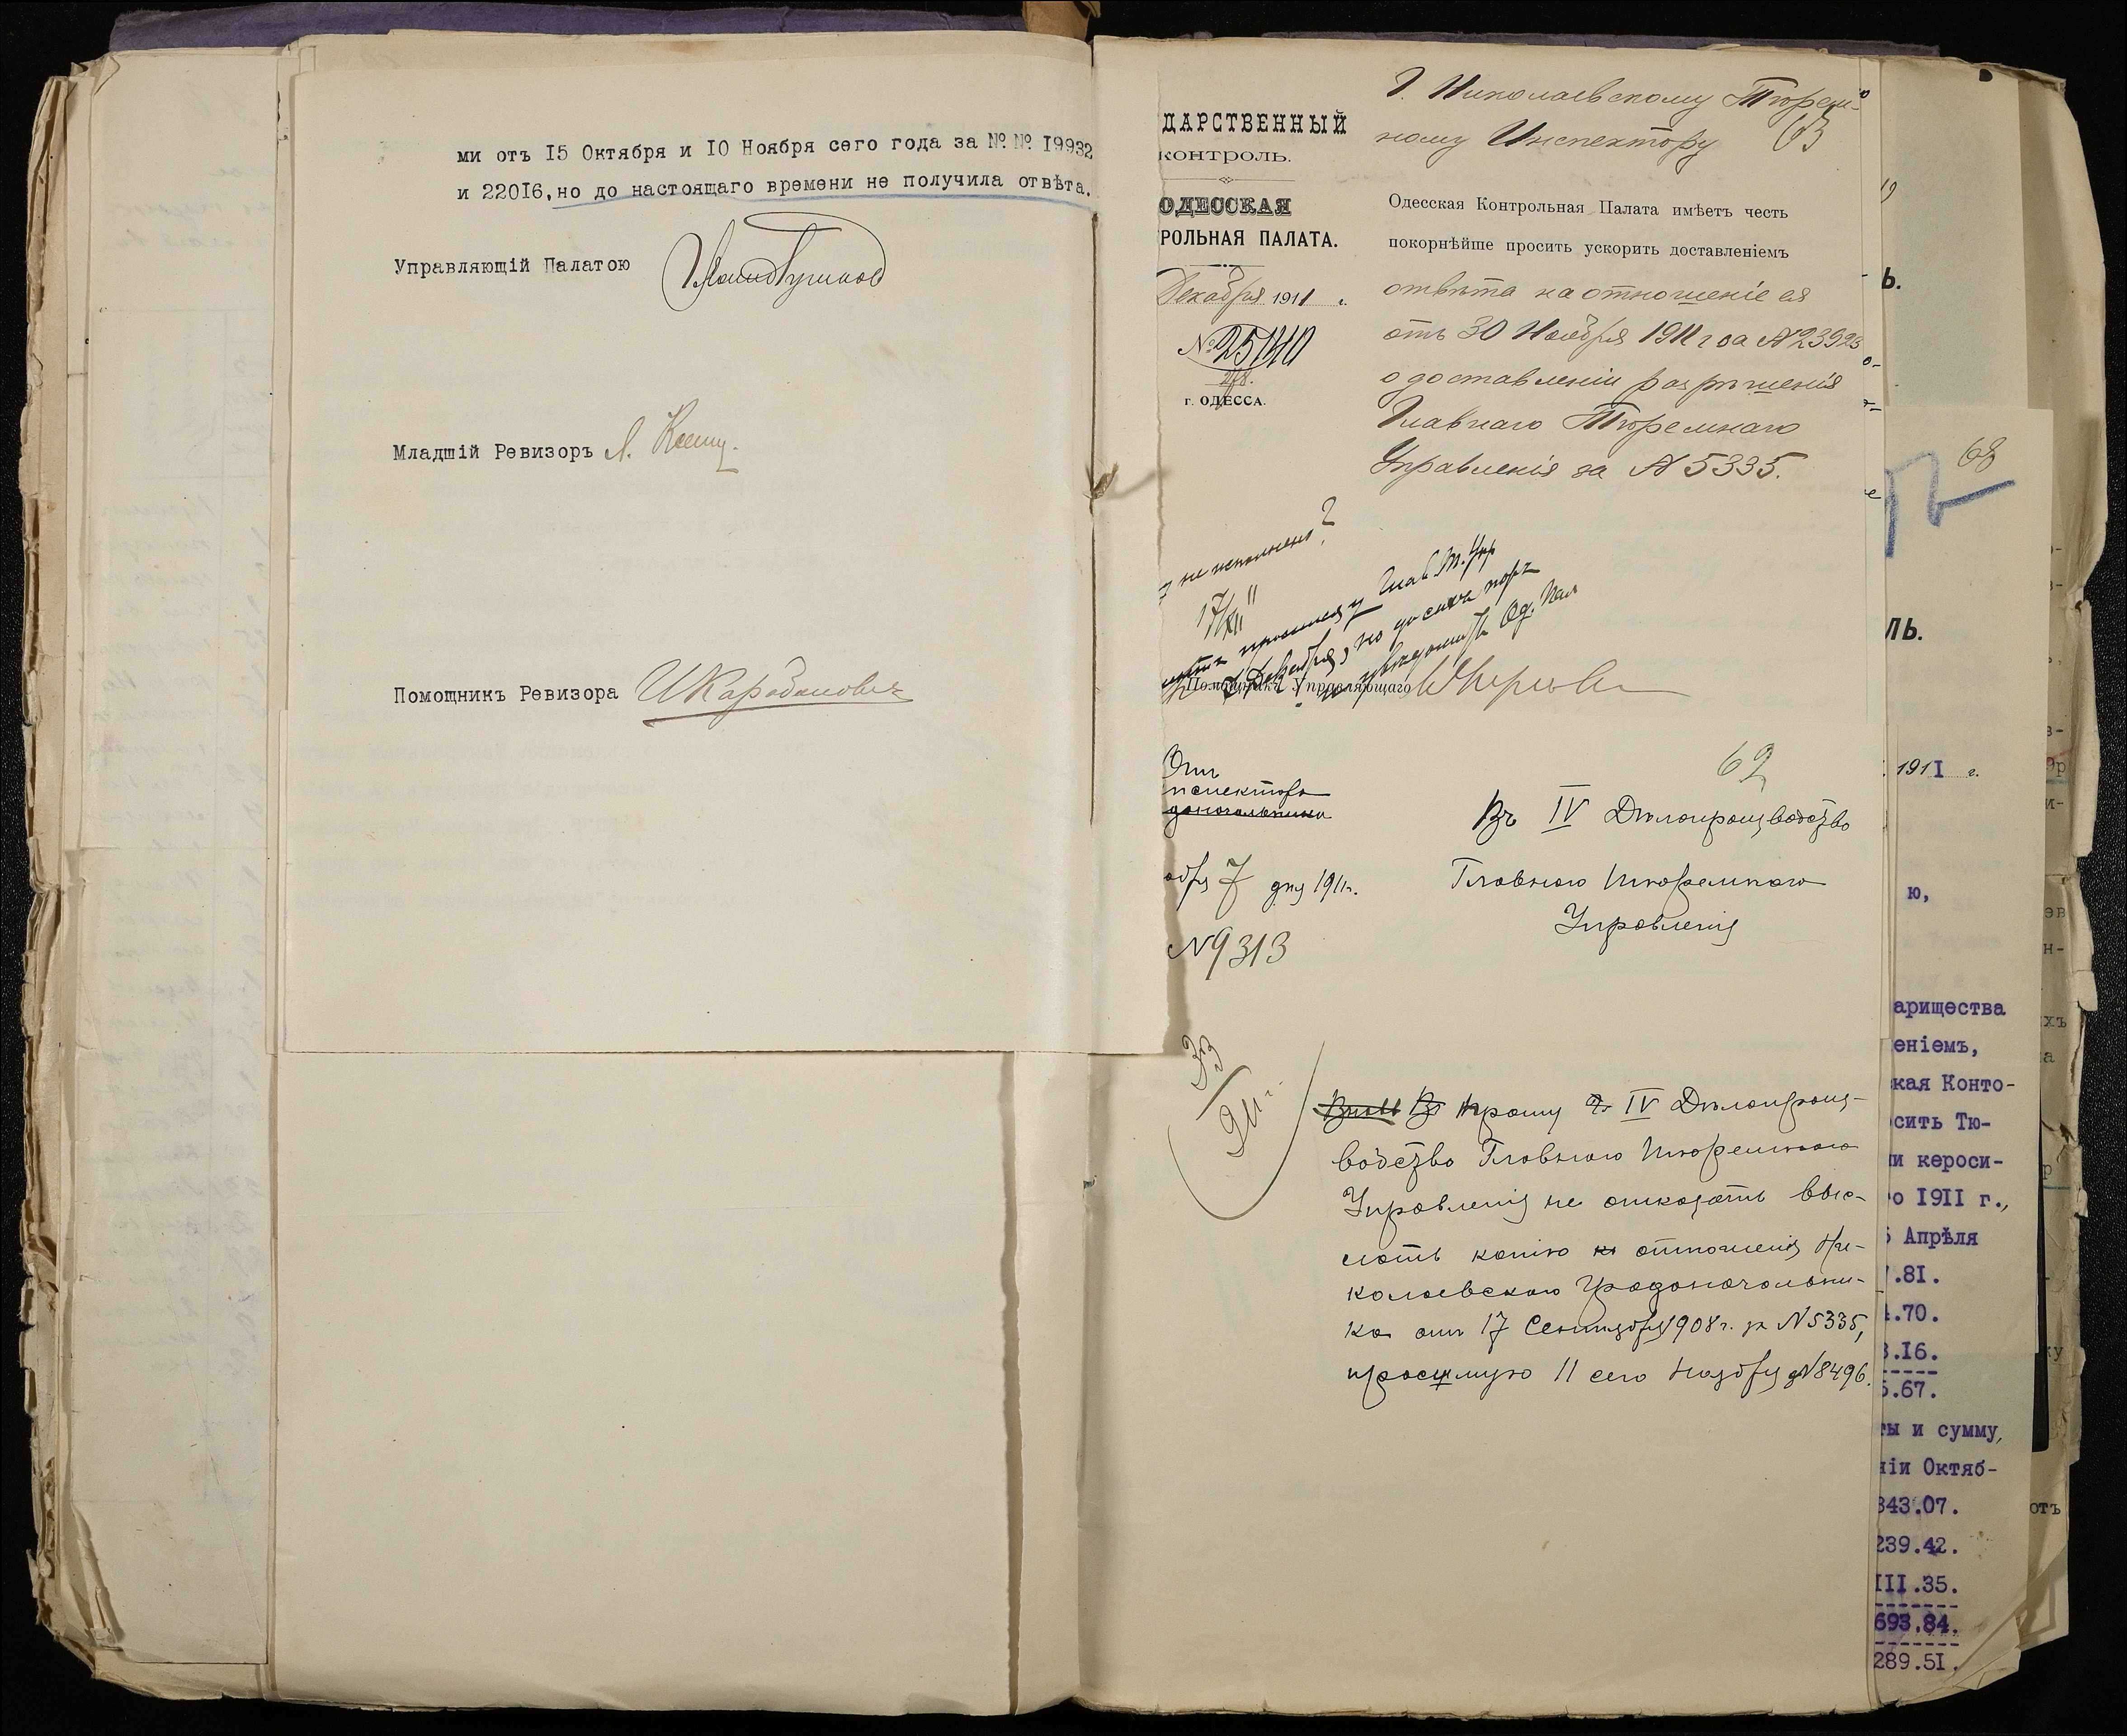 ми отъ 15 Октября и 10 Ноября сего года за №.№. 19932
и 22016, но до настоящаго времени не получила отвѣта.
Управляющій Палатою
Младшій Ревизоръ Л.
Помощникъ Ревизора
Г. Николаевскому Тюрем-
ному Инспектору
63
ДАРСТВЕННЫЙ
КОНТРОЛЬ.
ОДЕССКАЯ
РОЛЬНАЯ ПАЛАТА.
Декабря 1911 г.
№ 25140
278.
г. ОДЕССА.
Одесская Контрольная Палата имѣетъ честь
покорнѣйше просить ускорить доставленіемъ
отвѣта на отношеніе ея
отъ 30 Ноября 1911 г за № 23923
о доставленіи разрѣшенія
Главнаго Тюремнаго
Управленія за № 5335.
не исполнено?
17/XII 11
Глав. Т. Упр
Декабря, но до сихъ поръ
Од. Пал
Помощникъ Управляющаго
62
Отъ
нспектора
доначальника
обря 7 дня 1911 г.
№ 9313
Въ IV Дѣлопроизводство
Главнаго Тюремнаго
Управленія
33
Прошу IV Дѣлопроиз-
водство Главнаго Тюремнаго
Управленія не отказать выс-
лать копію отношенія Ни-
колаевскаго Градоначальни-
ка отъ 17 Сентября 1908 г. за № 5335,
просимую 11 сего Ноября № 8496.
68
Ь.
ЛЬ.
1911 г.
ю,
арищества
еніемъ,
кая Конто-
сить Тю-
и кероси-
о 1911 г.,
5 Апрѣля
.81.
.70.
3.16.
5.67.
ты и сумму,
ніи Октяб-
343.07.
239.42.
111.35.
693.84.
289.51.
отъ